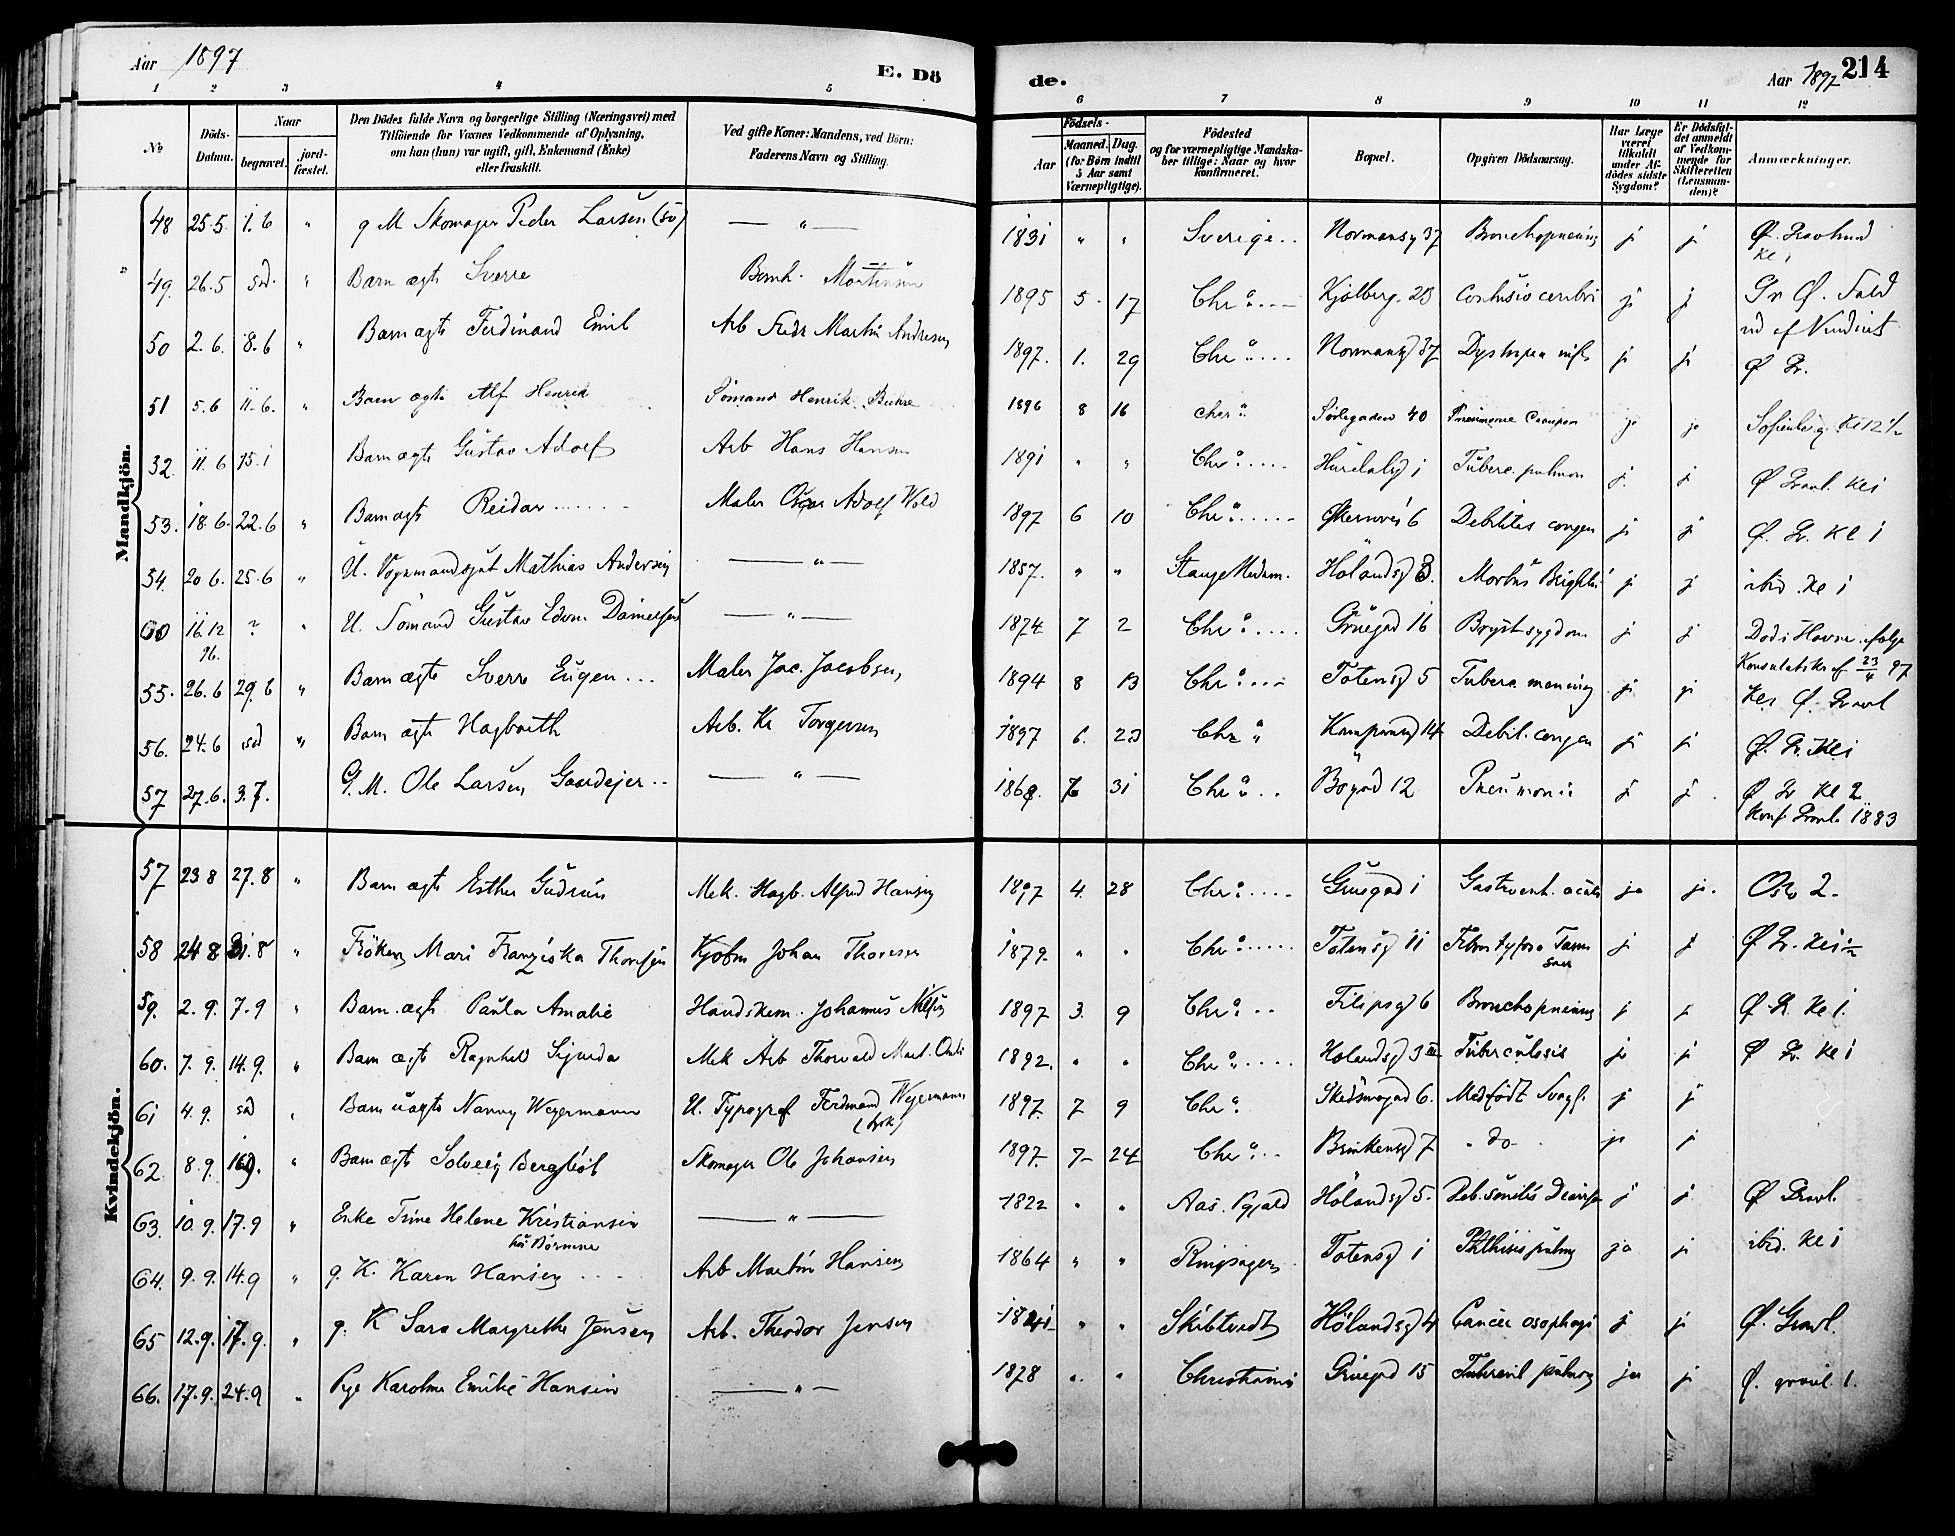 Aar 1897
E. Dö
de.
Aar 1897 214
1 2 3 4 5 6 7 8 9 10 11 12
No
Döds-Datum.
Naar
begravet.
jord-fæstet.
Den Dödes fulde Navn og borgerlige Stilling (Næringsvei) med
Tilföiende for Voxnes Vedkommende af Oplysning,
om han (hun) var ugift, gift, Enkemand (Enke)
eller fraskilt.
Ved gifte Koner: Mandens, ved Börn:
Faderens Navn og Stilling.
Födsels-
Aar
Maaned. Dag.
(for Börn indtil
5 Aar samt
Værnepligtige).
Födested
og for værnepligtige Mandska-
ber tillige: Naar og hvor
konfirmeret.
Bopæl.
Opgiven Dödsaarsag.
Har Læge
været
tilkaldt
under Af-
dödes sidste
Sygdom?
Er Dödsfal-
det anmeldt
af Vedkom-
mende for
Skifteretten
(Lensman-
den)?
Anmærkninger.
Mandkjön.
48 25.5. 1.6 " g M Skomager Peder Larsen (50) — " — 1831 " " Sverige.. Normansg 37 j j Ø.
Kl 1
49. 26.5 sd. " Barn ægte Sverre Bernh. Mortensen 1895 5 17 Chr a.... Kjølberg. 23 Contusio cerebri j j Gr Ø. Fald
ud af Vinduet
50 2.6. 8.6 " Barn ægte Ferdinand Emil Arb Fredr Martin Andresen 1897. 1. 29 Chr a.... Normansg 37 j j Ø Gr.
51 5.6 11.6. " Barn ægte Alf Henrik Sømand Henrik 1896 8 16 Chr a. Sørligaden 40 j j
32. 11.6 15.1 Barn ægte Gustav Adolf Arb Hans Hansen 1891 " " Chr a..... Hurdalsg 1 Tuberc. pulmon j. j Ø Gravl. Kl 1
53. 18.6. 22.6 " Barn ægte Reidar ....... Maler Oscar Adolf Wold 1897 6 10 Chr a..... Økernvei 6 Debilitas congen j j Ø. Gr. Kl 1
54. 20 6. 25.6 " U. Vognmandsgut Mathias Andersen — " — 1857. " " Stange Hedem. Hølandsg 3. Morbus Brightii j j ibid. Kl 1
60 16.12 ? "
96.
U. Sømand Gustav Edvin Danielsen — " — 1874 7 2 Chr a..... Gruegad 16 Brystsygdom j j Død i Havre ifølge
Konsulatsk. af 23/4 97
55. 26.6 29.6 " Barn ægte Sverre Eugen ... Maler Jac. Jacobsen 1894 8 13 Chr a.... Totensg 5 Tuberc. mening j. j Kl 1 Ø. Gravl
56. 24.6 sd " Barn ægte Hagbarth Arb. Kr Torgersen 1897 6. 23 Chr a Debil. congen j j Ø. Gr. Kl 1
57 27.6. 3.7. G. M. Ole Larsen Gaardejer .. — " — 1868. 7 31 Chr a.. Bøgad 12 Pneumonie j j. Ø Gr Kl 2
Konf. Gravl. 1883
Kvindekjön.
57 23 8 27.8 " Barn ægte Esther Gudrun Mek. Hagb. Alfred Hansen 1897 4. 28 Chr a..... Gruegad 1 Gastroent. acuta ja ja. Oslo 2.
58 24 8 31.8 " Frøken Mari Franziska Thoresen Kjøbm Johan Thoresen 1879. " " Chr a..... Totensg 11 j j Ø. Gr. Kl
59. 2.9. 7.9 " Barn ægte Paula Amalie Handskem. Johannes Nilsen 1897 3. 9 Chr a... Filipsgd 6 Bronchopneumon j j Ø. Gr. Kl 1.
60. 7. 9. 14.9. " Barn ægte Ragnhild Sigurda Mek Arb Thorvald Mart. 1892. " " Chr a..... Hølandsg 3 III Tuberculosis j j Ø Gr. Kl 1
61 4. 9. sd " Barn uægte Nanny Wegermann U. Typograf Ferdinand Wegermann 1897. 7 9 Chr a. Skedsmogad 6. Medfødt Svagh. j j
62. 8.9. 16.9. " Barn ægte Solveig Bergljot Skomager Ole Johansen 1897. 7- 24 Chr a... Brinkensg 7 " do " ja j
63. 10. 9. 17.9 " Enke Trine Helene Kristiansen — " — 1822 " " Aas. Hølandsg 5. Deb. senilis j j Ø Gravl.
hos Børnene
64. 9. 9. 14.9 " g. K. Karen Hansen .... Arb Martin Hansen 1864 " " Ringsager Totensg 1 Phthisis pulmon ja j ibid. Kl 1
65 12.9. 17.9. " g. K Sara Margrethe Jensen Arb. Theodor Jensen 1841 " " Skibtvedt Hølandsg 4 Cancer osophagi j j Ø. Gravl.
66. 17.9. 24.9 " Pge Karoline Emilie Hansen — " — 1828 " " Christiania Gruegad 15 ja j Ø. gravl. 1.